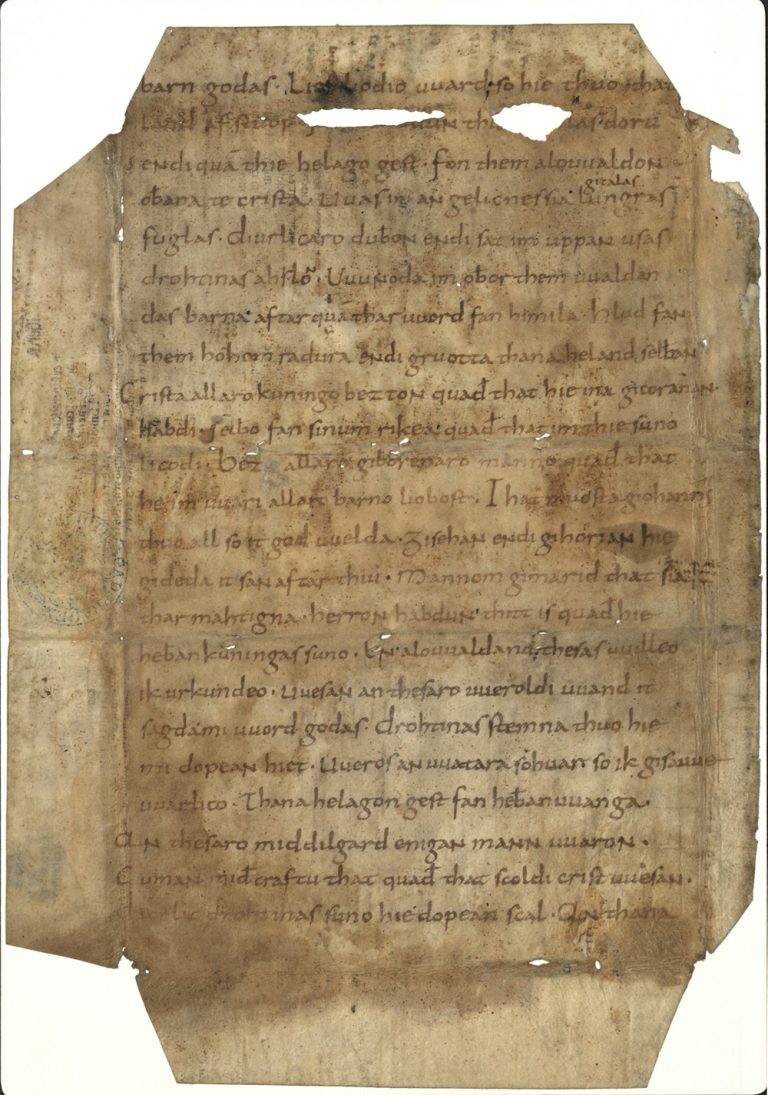 barn godas · Liof liodio uuard · so hie thuo that
land afstop un thi las · doru
endi quā thie helago gest · fon them alouualdon
oƀana te crista · Uuas im an gelicnessia lungras
gitalas
fuglas · diurlicaro duƀon endi sat im uppan usas
drohtinas ahslō · Uuunoda im oƀor them uualdan
das barna · aftar quā thar uuord fan himila · hlud fan
them hohom radura endi gruotta thana heland selƀan
Crista allaro kuningo bezton quađ that hie ina gicoranan ·
habdi · selbo fan sinum rikea · quađ that im thie suno
licodi · bez allaro giborenaro manno quađ that
he im uuari allaro barno lioƀost · That muosta giohannis
thuo all so it god uuelda · zisehan endi gihorian hie
gideda it san aftar thiu · Mannom gimarid that sia
thar mahtigna · herron habdun · thitt is quađ hie
heƀankuningas suno · En alouualdand · thesas uuilleo
ik urkundeo · Uuesan an thesaro uueroldi uuand it
sagda mi uuord godas · drohtinas stemna thuo hie
mi dopean hiet · Uueros an uuatara sohuar so ik gisauue
uuarlico · Thana helagon gest fan heƀanuuanga ·
An thesaro middilgard enigan mann uuaron ·
Cuman mid craftu that quađ that scoldi crist uuesan ·
drohtinas suno hie dopean scal · An thana